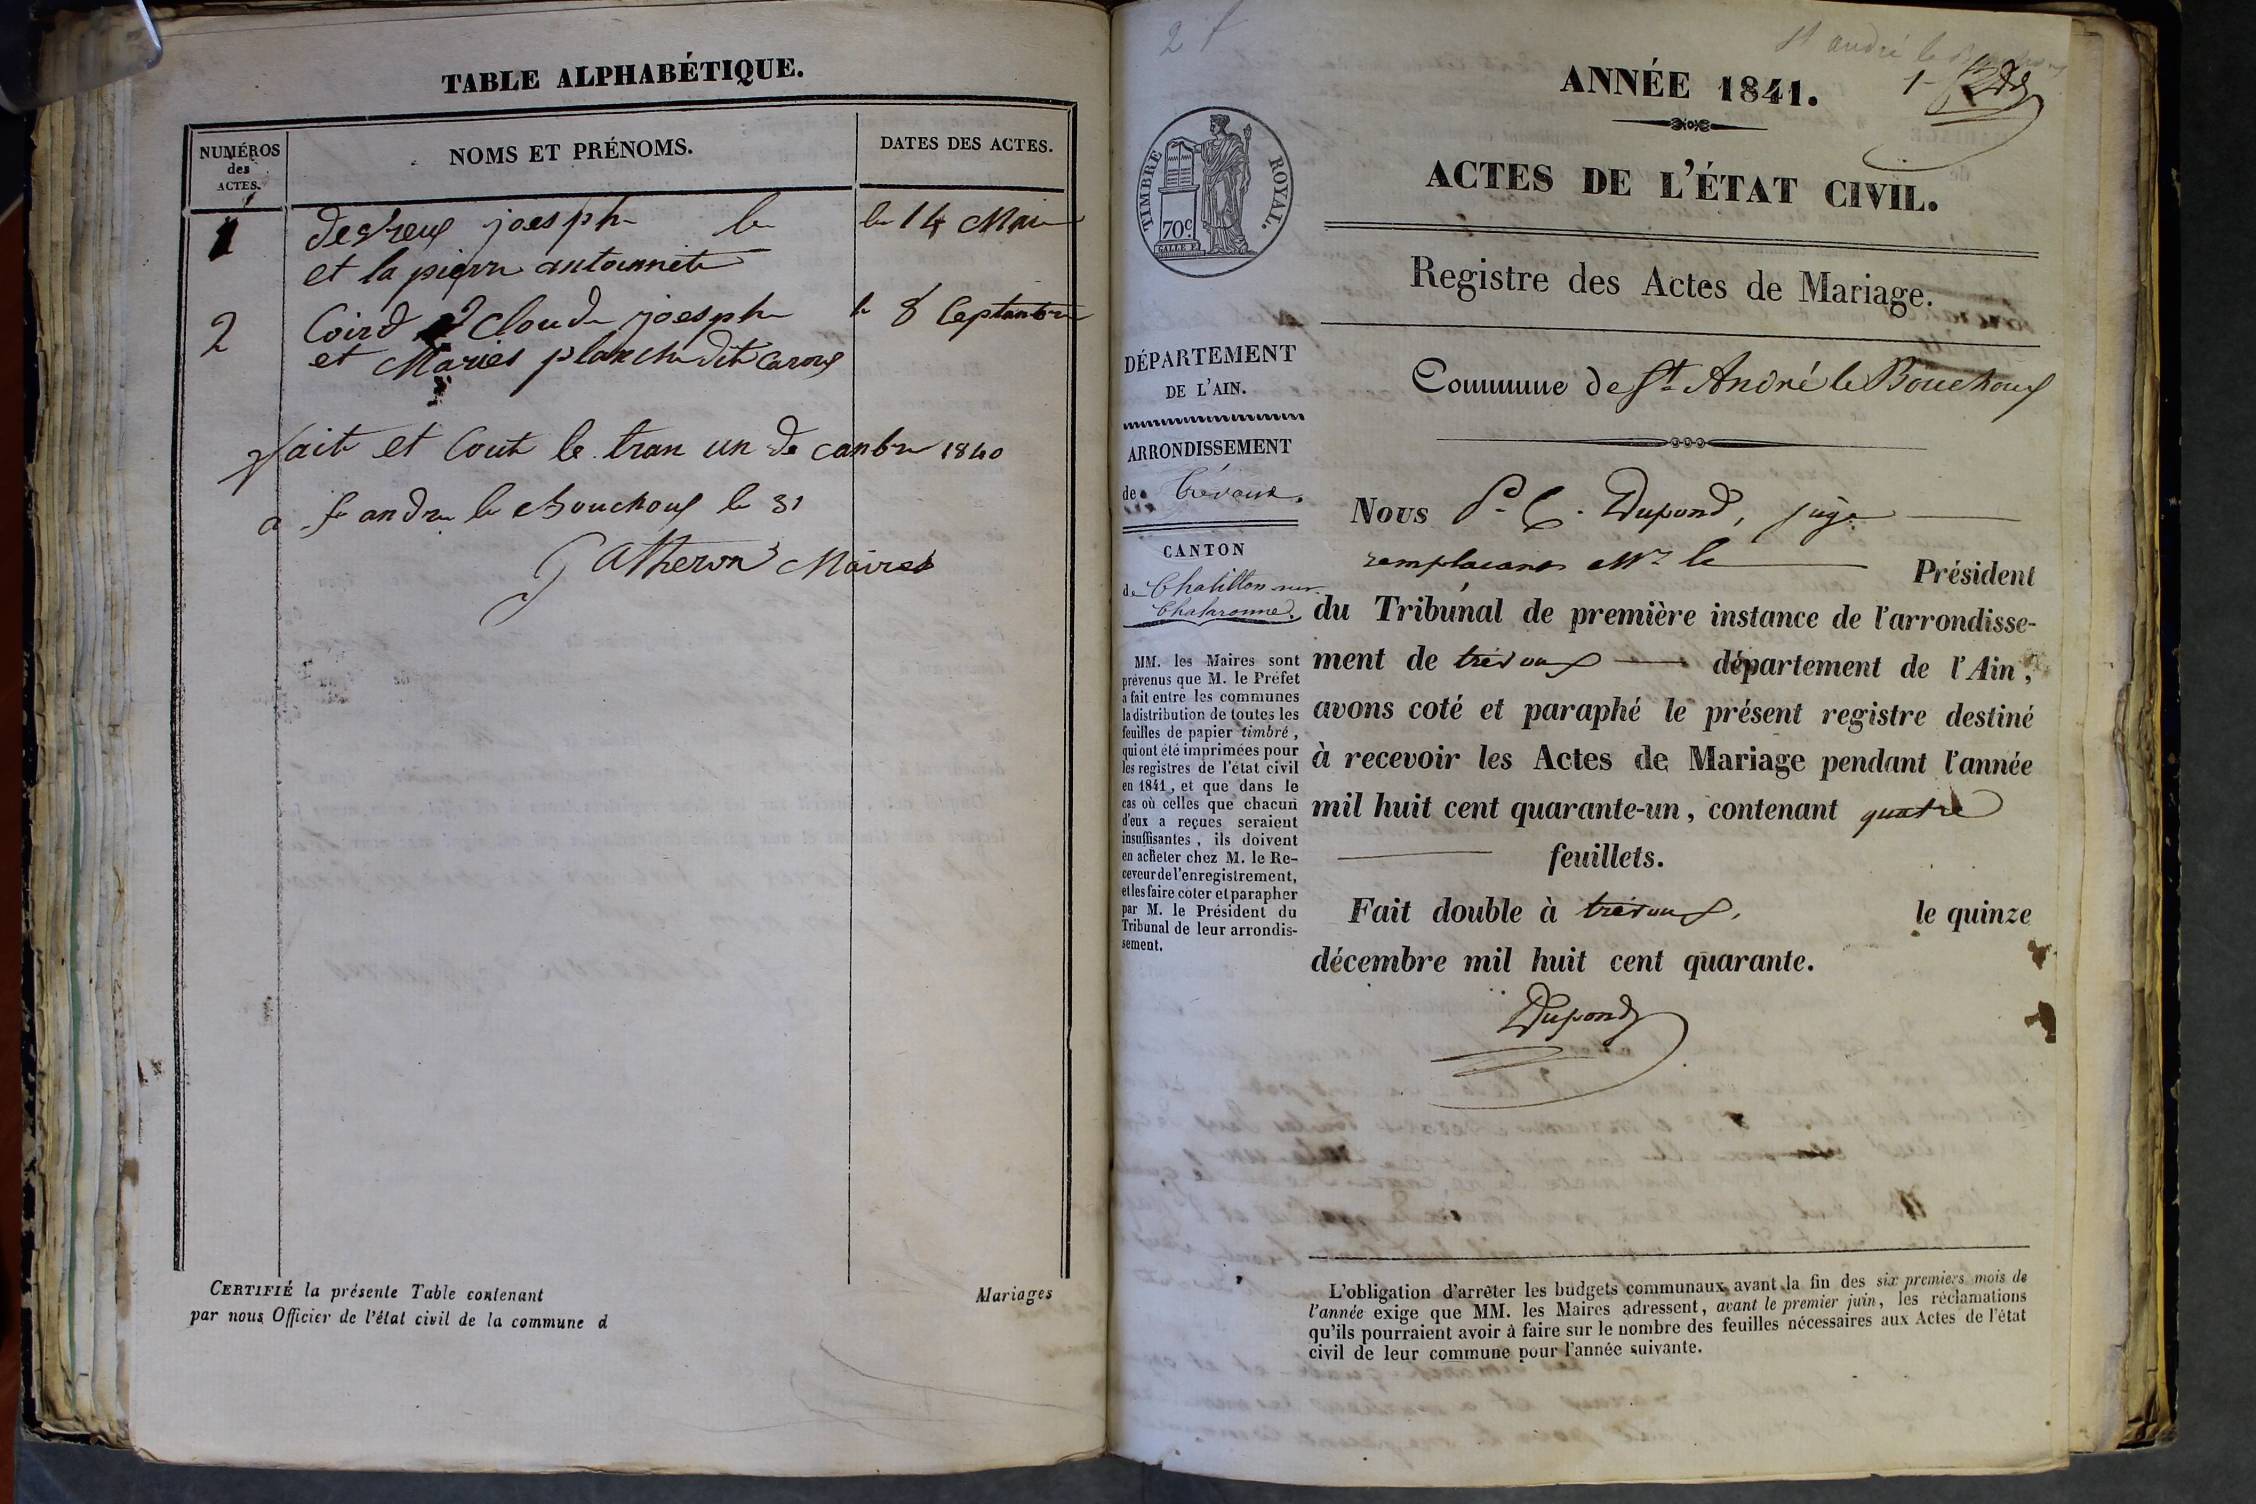 TABLE ALPHABÉTIQUE.
NUMÉROS
des
ACTES.
NOMS ET PRÉNOMS.
DATES DES ACTES.
1
joesph le
le 14 Mai
et la pierre antoinnete
2
Coird Claude joesph
le 8 Septanbre
et Maries planche dit Caron
fait et Cout le tran un de canbre 1840
a st andre le Bouchoux le 31
Matheron Maires
CERTIFIÉ la présente Table contenant
Mariages
par nous Officier de l'état civil de la commune d
2 f
St andré le Bouchoux
1-
ANNÉE 1841.
ACTES DE L'ÉTAT CIVIL.
TIMBRE ROYAL.
70c.
Registre des Actes de Mariage.
DÉPARTEMENT
DE L'AIN.
ARRONDISSEMENT
de Trévoux.
CANTON
de Chatillon sur
Chalaronne.
MM. les Maires sont
prévenus que M. le Préfet
a fait entre les communes
la distribution de toutes les
feuilles de papier timbré,
qui ont été imprimées pour
les registres de l'état civil
en 1841, et que dans le
cas où celles que chacun
d'eux a reçues seraient
insuffisantes, ils doivent
en acheter chez M. le Re-
ceveur de l'enregistrement,
et les faire coter et parapher
par M. le Président du
Tribunal de leur arrondis-
sement.
Commune de St André le Bouchoux
Nous P. C. Dupond, juge
remplacant Mr le Président
du Tribunal de première instance de l'arrondisse-
ment de trévoux département de l'Ain,
avons coté et paraphé le présent registre destiné
à recevoir les Actes de Mariage pendant l'année
mil huit cent quarante-un, contenant quatre
feuillets.
Fait double à trévoux, le quinze
décembre mil huit cent quarante.
Dupond
L'obligation d'arrêter les budgets communaux avant la fin des six premiers mois de
l'année exige que MM. les Maires adressent, avant le premier juin, les réclamations
qu'ils pourraient avoir à faire sur le nombre des feuilles nécessaires aux Actes de l'état
civil de leur commune pour l'année suivante.